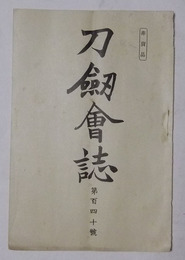 非賣品
刀劔會誌
第百四十號